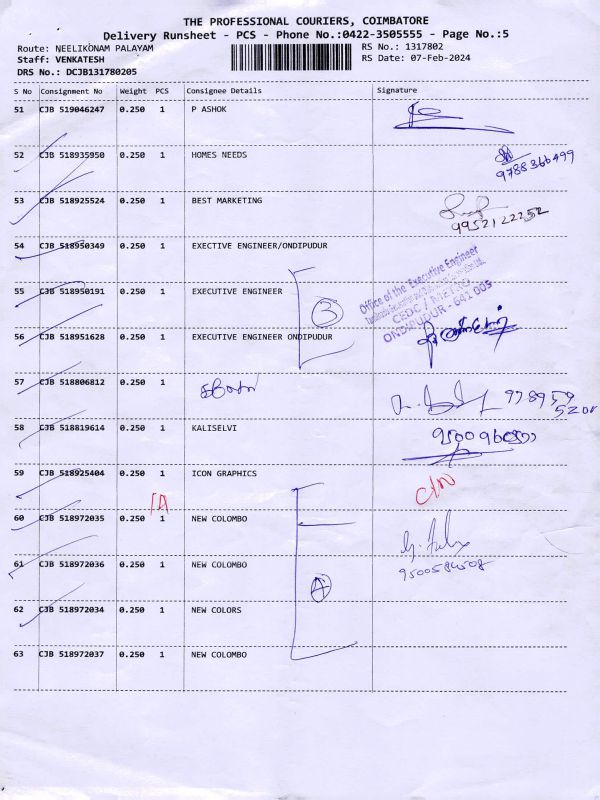 THE PROFESSIONAL COURIERS, COIMBATORE
Delivery Runsheet - PCS - Phone No.:0422-3505555 - Page No.:5
Route: NEELIKONAM PALAYAM RS No.: 1317802
Staff: VENKATESH RS Date: 07-Feb-2024
DRS No.: DCJB131780205
S No Consignment No Weight PCS Consignee Details Signature
51 CJB 519046247 0.250 1 P ASHOK
52 CJB 518935950 0.250 1 HOMES NEEDS
9788366499
53 CJB 518925524 0.250 1 BEST MARKETING
9952122252
54 CJB 518950349 0.250 1 EXECTIVE ENGINEER/ONDIPUDUR
Office of the Executive Engineer
55 CJB 518950191 0.250 1 EXECUTIVE ENGINEER
3
CEDC / METRO
ONDIPUDUR - 641 005
56 CJB 518951628 0.250 1 EXECUTIVE ENGINEER ONDIPUDUR
57 CJB 518806812 0.250 1
58 CJB 518819614 0.250 1 KALISELVI
59 CJB 518925404 0.250 1 ICON GRAPHICS
60 CJB 518972035 0.250 1 NEW COLOMBO
61 CJB 518972036 0.250 1 NEW COLOMBO
9500584508
62 CJB 518972034 0.250 1 NEW COLORS
63 CJB 518972037 0.250 1 NEW COLOMBO